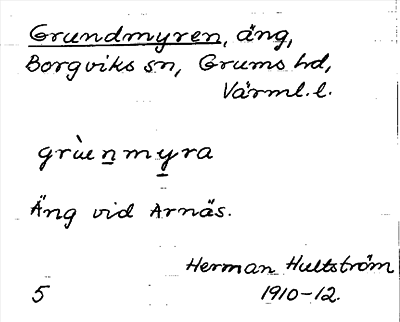 Grundmyren, äng,
Borgviks sn, Grums hd,
Värml. l.
grùenmyra
Äng vid Arnäs.
Herman Hultström
5 1910-12.